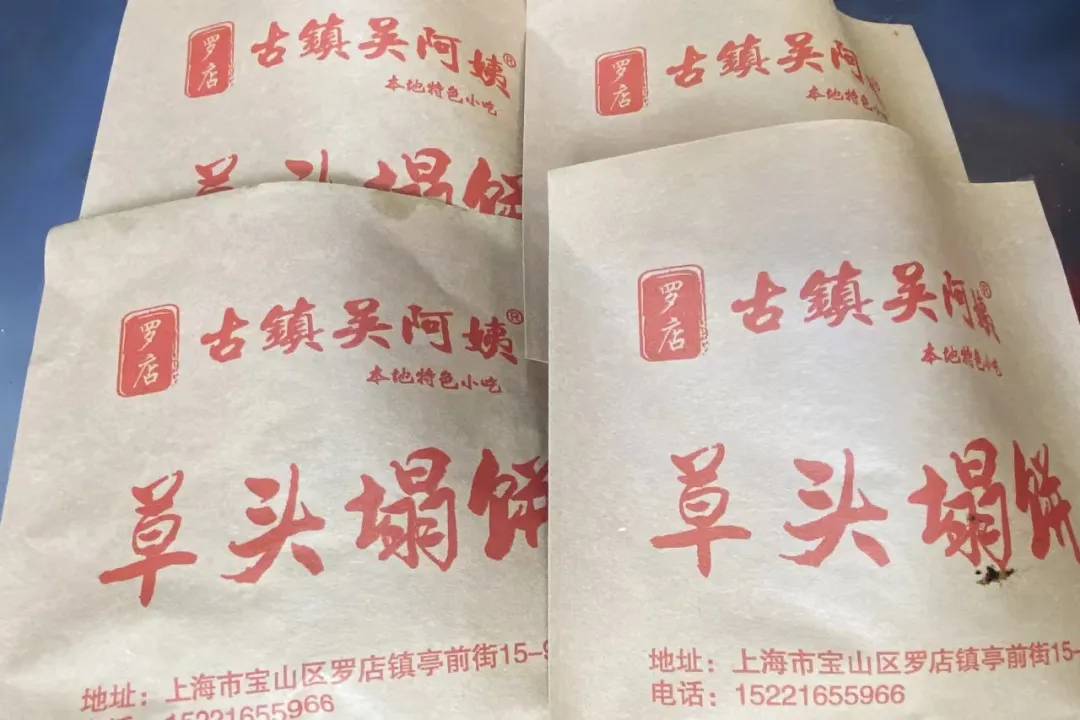 罗店
古鎮吴阿姨®
本地特色小吃
草头塌饼
罗店
古鎮吴阿
本地特色小吃
罗店
古鎮吴阿姨®
本地特色小吃
草头塌饼
地址：上海市宝山区罗店镇亭前街15-9
15221655966
罗店
古鎮吴阿姨®
本地特色小吃
草头塌饼
地址：上海市宝山区罗店镇亭前街15-
电话：15221655966